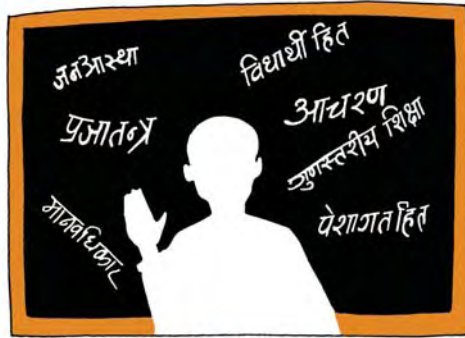 जनआस्था
विद्यार्थी हित
प्रजातन्त्र
आचरण
गुणस्तरीय शिक्षा
मानवधिकार
पेशागत हित